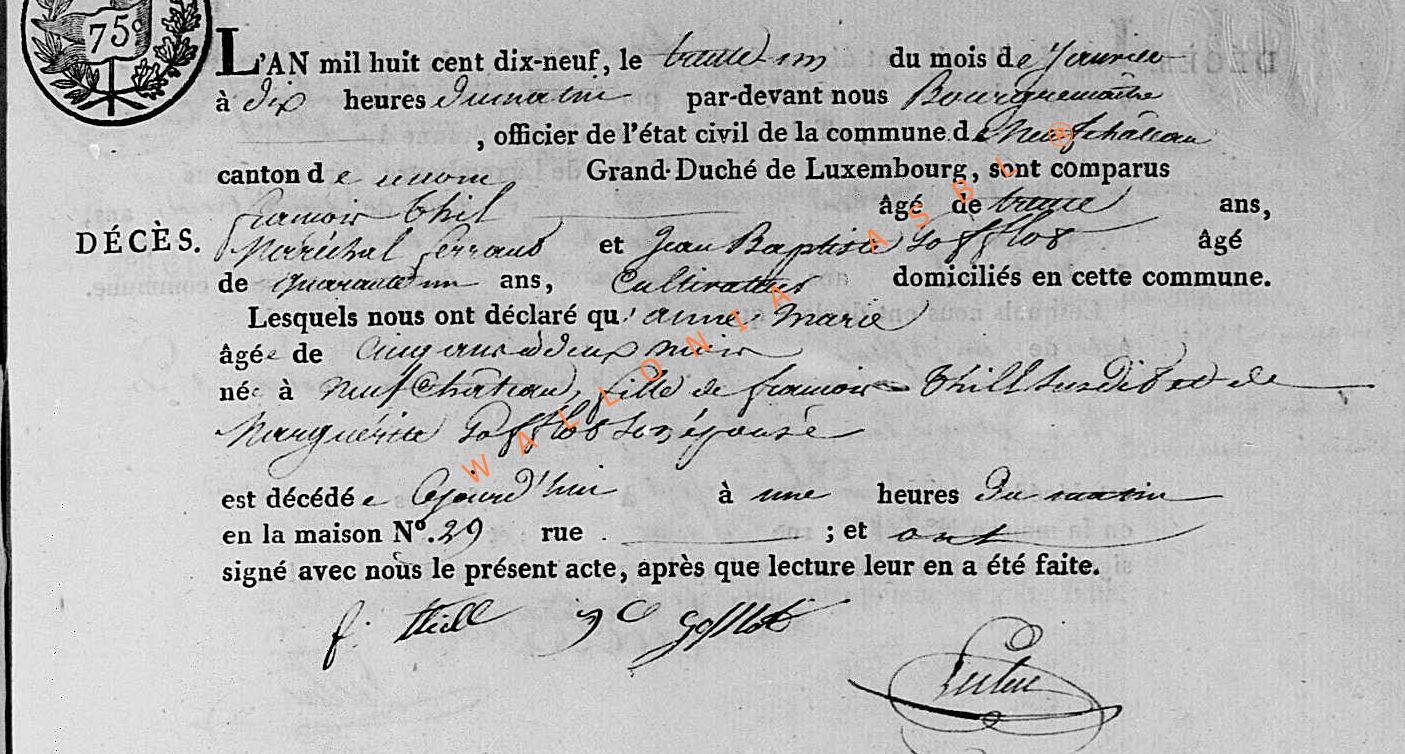 75c
L'AN mil huit cent dix-neuf, le trente un du mois de Janvier
à Dix heures du matin par-devant nous Bourguemaître
, officier de l'état civil de la commune de Neufchâteau
canton de Grand-Duché de Luxembourg, sont comparus
francois thil âgé de trente ans,
DÉCÈS. Maréchal ferrand et Jean Baptiste Gofflot âgé
de quarante un ans, Cultivateur domiciliés en cette commune.
Lesquels nous ont déclaré qu' anne Marie
âgée de Cinq ans et deux mois
née à Neufchâteau, fille de francois thill susdit et de
Marguérite Gofflot son épouse
est décédée Cejourd'hui à une heures Du matin
en la maison N°. 29 rue ; et ont
signé avec nous le présent acte, après que lecture leur en a été faite.
f. thill Gofflot
WALLONIA ASBL @